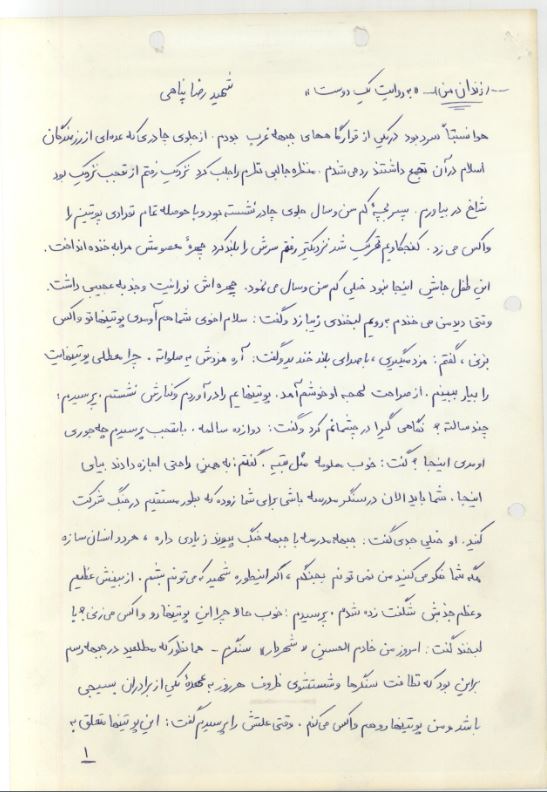 از زندان من - «به روایت یک دوست» شهید رضا پناهی
هوا نسبتاً سرد بود در یکی از قرارگاه‌های جبهه غرب بودم. از جلوی چادری که عده‌ای از رزمندگان
اسلام در آن تجمع داشتند رد می‌شدم. منظره جالبی نظرم را جلب کرد نزدیک رفتم از تعجب نزدیک بود
شاخ در بیاورم. پسر بچه‌ای کم سن و سال جلوی چادر نشسته بود و با حوصله تمام تعدادی پوتین را
واکس می‌زد. کنجکاویم تحریک شد نزدیکتر رفتم سرش را بلند کرد چهرهٔ معصومش مرا به خنده انداخت.
این طفل جایش اینجا نبود خیلی کم سن و سال می‌نمود. چهره‌اش نورانیت و جذبه عجیبی داشت.
وقتی دید من می‌خندم به رویم لبخندی زیبا زد و گفت: سلام اخوی شما هم آومدی پوتینهاتو واکس
بزنی، گفتم: مزد میگیری، با صدای بلند خندید و گفت: آره مزدش یه صلواته. چرا معطلی پوتینهایت
را بیار ببینم. از صراحت لهجه او خوشم آمد. پوتینهایم را درآوردم و کنارش نشستم. پرسیدم:
چند سالته؟ نگاهی گیرا در چشمانم کرد و گفت: دوازده سالمه. با تعجب پرسیدم چه جوری
اومدی اینجا؟ گفت: خوب معلومه مثل بقیه. گفتم: به همین راحتی اجازه دادند بیای
اینجا. شما باید الان در سنگر مدرسه باشی برای شما زوده که بطور مستقیم در جنگ شرکت
کنید. او خیلی جدی گفت: جبهه مدرسه با جبهه جنگ پیوند زیادی داره، هر دو انسان سازه
مگه شما فکر می‌کنید من نمی‌تونم بجنگم، اگر اینطوره شهید که می‌تونم بشم. از بینش عظیم
و عظم جذمش شگفت زده شدم. پرسیدم: خوب حالا چرا این پوتینها رو واکس می‌زنی؟ با
لبخند گفت: امروز من خادم الحسین «شهردار» سنگرم - همانطور که مطلعید در جبهه رسم
بر این بود که نظافت سنگرها و شستشوی ظروف هر روز به عهدهٔ یکی از برادران بسیجی
باشد و من پوتینها رو هم واکس می‌کنم. وقتی علتش را پرسیدم گفت: این پوتینها متعلق به
۱